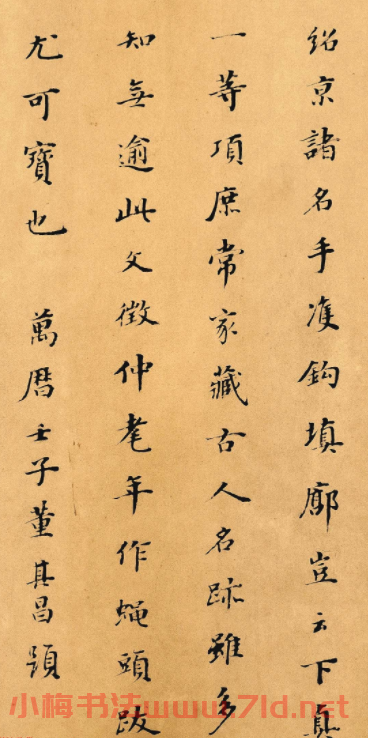 紹京諸名手雙鈎填廓豈云下真
一等項庶常家藏古人名跡雖多
知無逾此文徵仲耄年作蠅頭跋
尤可寶也 萬曆壬子董其昌題
小梅书法www.7ld.net